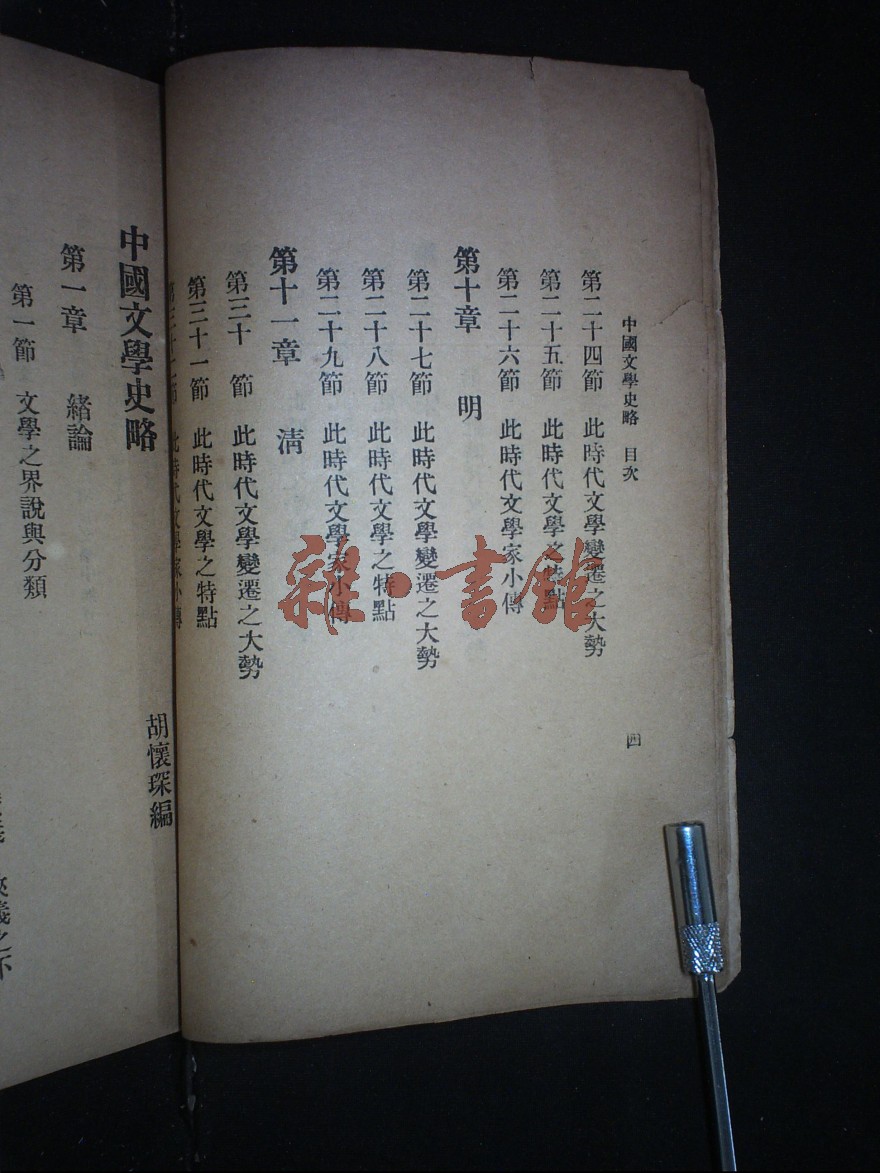 中國文學史略 目次
四
第二十四節 此時代文學變遷之大勢
第二十五節 此時代文學之特點
第二十六節 此時代文學家小傳
第十章 明
第二十七節 此時代文學變遷之大勢
第二十八節 此時代文學之特點
第二十九節 此時代文學家小傳
第十一章 清
第三十 節 此時代文學變遷之大勢
第三十一節 此時代文學之特點
第三十二節 此時代文學家小傳
雜·書館
中國文學史略
胡懷琛編
第一章 緒論
第一節 文學之界說與分類
義之不